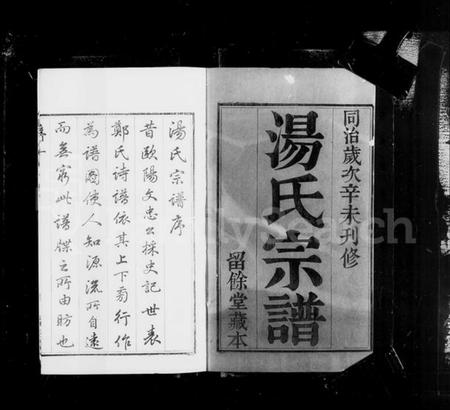 同治歲次辛未刊修
湯氏宗譜
留餘堂藏本
湯氏宗譜序
昔歐陽文忠公採史記世表
鄭氏詩譜依其上下旁行作
為譜圖使人知源流所自遠
而無窮此譜牒之所由昉也
序一